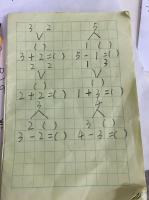 3 2 5
( ) 1 ( )
3+2=( ) 5-1=( )
2 2 1 3
( ) ( )
2+2=( ) 1+3=( )
3 4
2 ( ) 3 ( )
3-2=( ) 4-3=( )